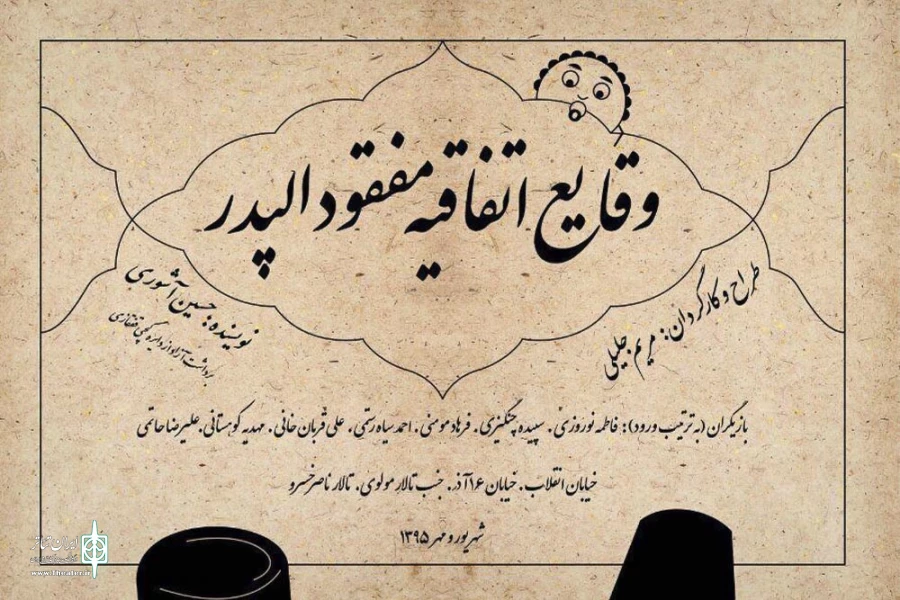 وقایع اتفاقیه مفقود الپدر
طراح و کارگردان: مریم جلیلی
نویسنده: حسین آشوری
برداشت آزاد از دایره گچی قفقازی
بازیگران (به ترتیب ورود): فاطمه نوروزی. سپیده چنگیزی. فرهاد مومنی. احمد سیاه رستمی. علی قربان خانی. مهدیه کوهستانی. علیرضا حاتمی
خیابان انقلاب. خیابان ۱۶ آذر. جنب تالار مولوی. تالار ناصرخسرو
شهریور و مهر ۱۳۹۵
ایران تئاتر
www.Theater.ir